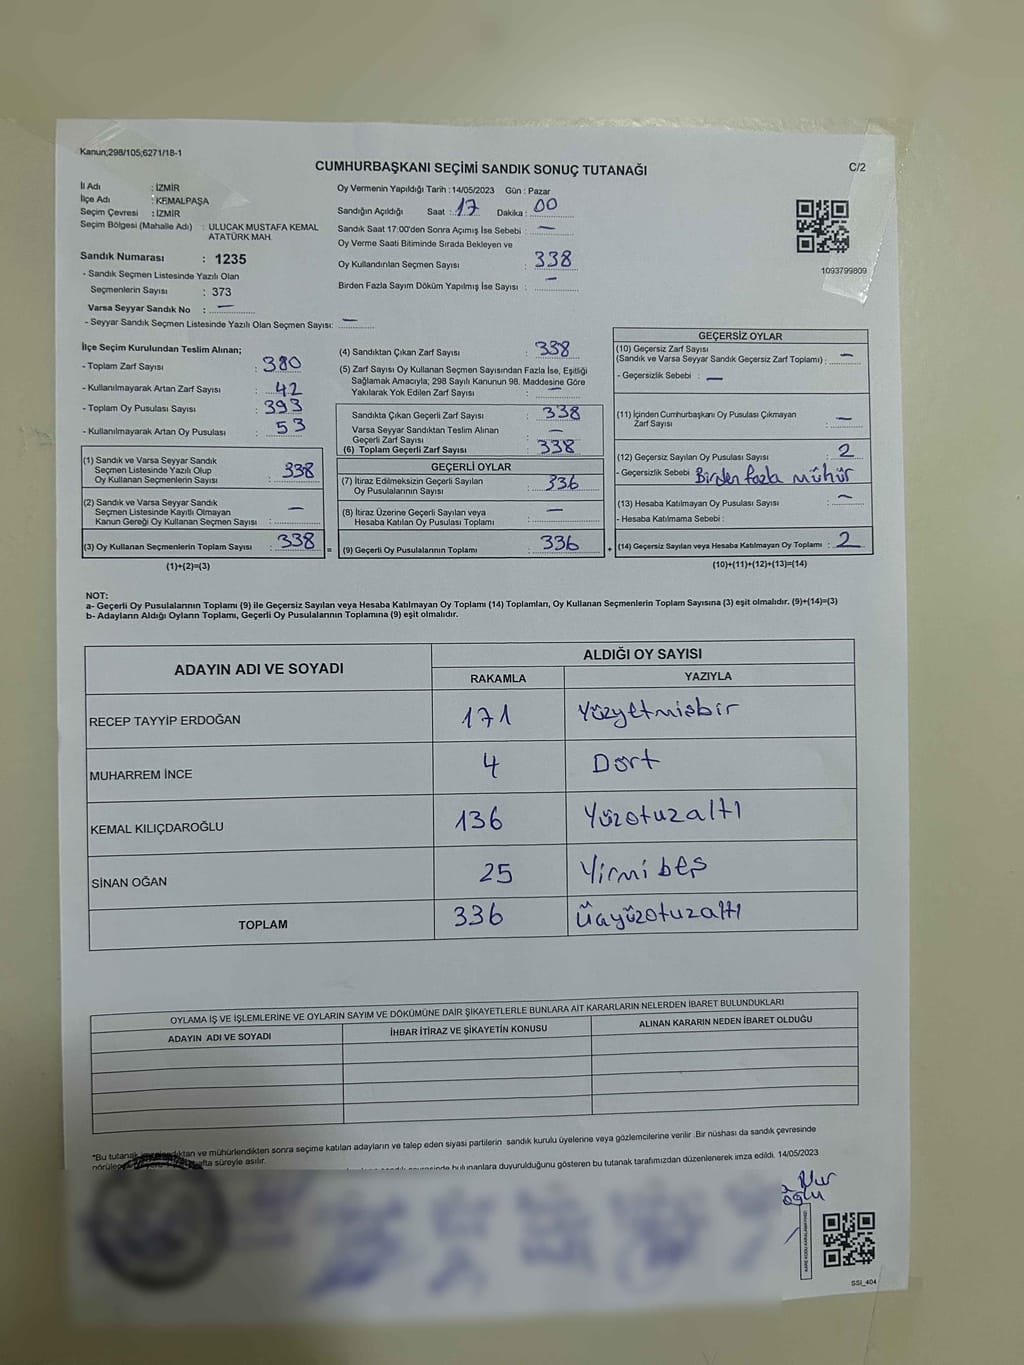 Kanun;298/105;6271/18-1
CUMHURBAŞKANI SEÇİMİ SANDIK SONUÇ TUTANAĞI
C/2
İl Adı : İZMİR
İlçe Adı : KEMALPAŞA
Seçim Çevresi : İZMİR
Seçim Bölgesi (Mahalle Adı) : ULUCAK MUSTAFA KEMAL
ATATÜRK MAH.
Sandık Numarası : 1235
- Sandık Seçmen Listesinde Yazılı Olan
Seçmenlerin Sayısı : 373
Varsa Seyyar Sandık No : —
- Seyyar Sandık Seçmen Listesinde Yazılı Olan Seçmen Sayısı: —
Oy Vermenin Yapıldığı Tarih : 14/05/2023 Gün : Pazar
Sandığın Açıldığı Saat : 17 Dakika : 00
Sandık Saat 17:00'den Sonra Açımış İse Sebebi : —
Oy Verme Saati Bitiminde Sırada Bekleyen ve
Oy Kullandırılan Seçmen Sayısı : 338
Birden Fazla Sayım Döküm Yapılmış İse Sayısı : —
1093799809
İlçe Seçim Kurulundan Teslim Alınan;
- Toplam Zarf Sayısı : 380
- Kullanılmayarak Artan Zarf Sayısı : 42
- Toplam Oy Pusulası Sayısı : 393
- Kullanılmayarak Artan Oy Pusulası : 53
(1) Sandık ve Varsa Seyyar Sandık
Seçmen Listesinde Yazılı Olup
Oy Kullanan Seçmenlerin Sayısı : 338
(2) Sandık ve Varsa Seyyar Sandık
Seçmen Listesinde Kayıtlı Olmayan
Kanun Gereği Oy Kullanan Seçmen Sayısı : —
(3) Oy Kullanan Seçmenlerin Toplam Sayısı : 338 =
(1)+(2)=(3)
(4) Sandıktan Çıkan Zarf Sayısı : 338
(5) Zarf Sayısı Oy Kullanan Seçmen Sayısından Fazla İse, Eşitliği
Sağlamak Amacıyla; 298 Sayılı Kanunun 98. Maddesine Göre
Yakılarak Yok Edilen Zarf Sayısı : —
Sandıkta Çıkan Geçerli Zarf Sayısı : 338
Varsa Seyyar Sandıktan Teslim Alınan
Geçerli Zarf Sayısı : —
(6) Toplam Geçerli Zarf Sayısı : 338
GEÇERLİ OYLAR
(7) İtiraz Edilmeksizin Geçerli Sayılan
Oy Pusulalarının Sayısı : 336
(8) İtiraz Üzerine Geçerli Sayılan veya
Hesaba Katılan Oy Pusulası Toplamı : —
(9) Geçerli Oy Pusulalarının Toplamı : 336 +
GEÇERSİZ OYLAR
(10) Geçersiz Zarf Sayısı
(Sandık ve Varsa Seyyar Sandık Geçersiz Zarf Toplamı) : —
- Geçersizlik Sebebi : —
(11) İçinden Cumhurbaşkanı Oy Pusulası Çıkmayan
Zarf Sayısı : —
(12) Geçersiz Sayılan Oy Pusulası Sayısı : 2
- Geçersizlik Sebebi Birden fazla mühür
(13) Hesaba Katılmayan Oy Pusulası Sayısı : —
- Hesaba Katılmama Sebebi :
(14) Geçersiz Sayılan veya Hesaba Katılmayan Oy Toplamı : 2
(10)+(11)+(12)+(13)=(14)
NOT:
a- Geçerli Oy Pusulalarının Toplamı (9) ile Geçersiz Sayılan veya Hesaba Katılmayan Oy Toplamı (14) Toplamları, Oy Kullanan Seçmenlerin Toplam Sayısına (3) eşit olmalıdır. (9)+(14)=(3)
b- Adayların Aldığı Oyların Toplamı, Geçerli Oy Pusulalarının Toplamına (9) eşit olmalıdır.
ADAYIN ADI VE SOYADI
ALDIĞI OY SAYISI
RAKAMLA YAZIYLA
RECEP TAYYİP ERDOĞAN 171 Yüzyetmişbir
MUHARREM İNCE 4 Dört
KEMAL KILIÇDAROĞLU 136 Yüzotuzaltı
SİNAN OĞAN 25 Yirmi beş
TOPLAM 336 Üçyüzotuzaltı
OYLAMA İŞ VE İŞLEMLERİNE VE OYLARIN SAYIM VE DÖKÜMÜNE DAİR ŞİKAYETLERLE BUNLARA AİT KARARLARIN NELERDEN İBARET BULUNDUKLARI
ADAYIN ADI VE SOYADI İHBAR İTİRAZ VE ŞİKAYETİN KONUSU ALINAN KARARIN NEDEN İBARET OLDUĞU
*Bu tutanak ve mühürlendikten sonra seçime katılan adayların ve talep eden siyasi partilerin sandık kurulu üyelerine veya gözlemcilerine verilir .Bir nüshası da sandık çevresinde
süreyle asılır.
bulunanlara duyurulduğunu gösteren bu tutanak tarafımızdan düzenlenerek imza edildi. 14/05/2023
Nur
oğlu
SSI_404